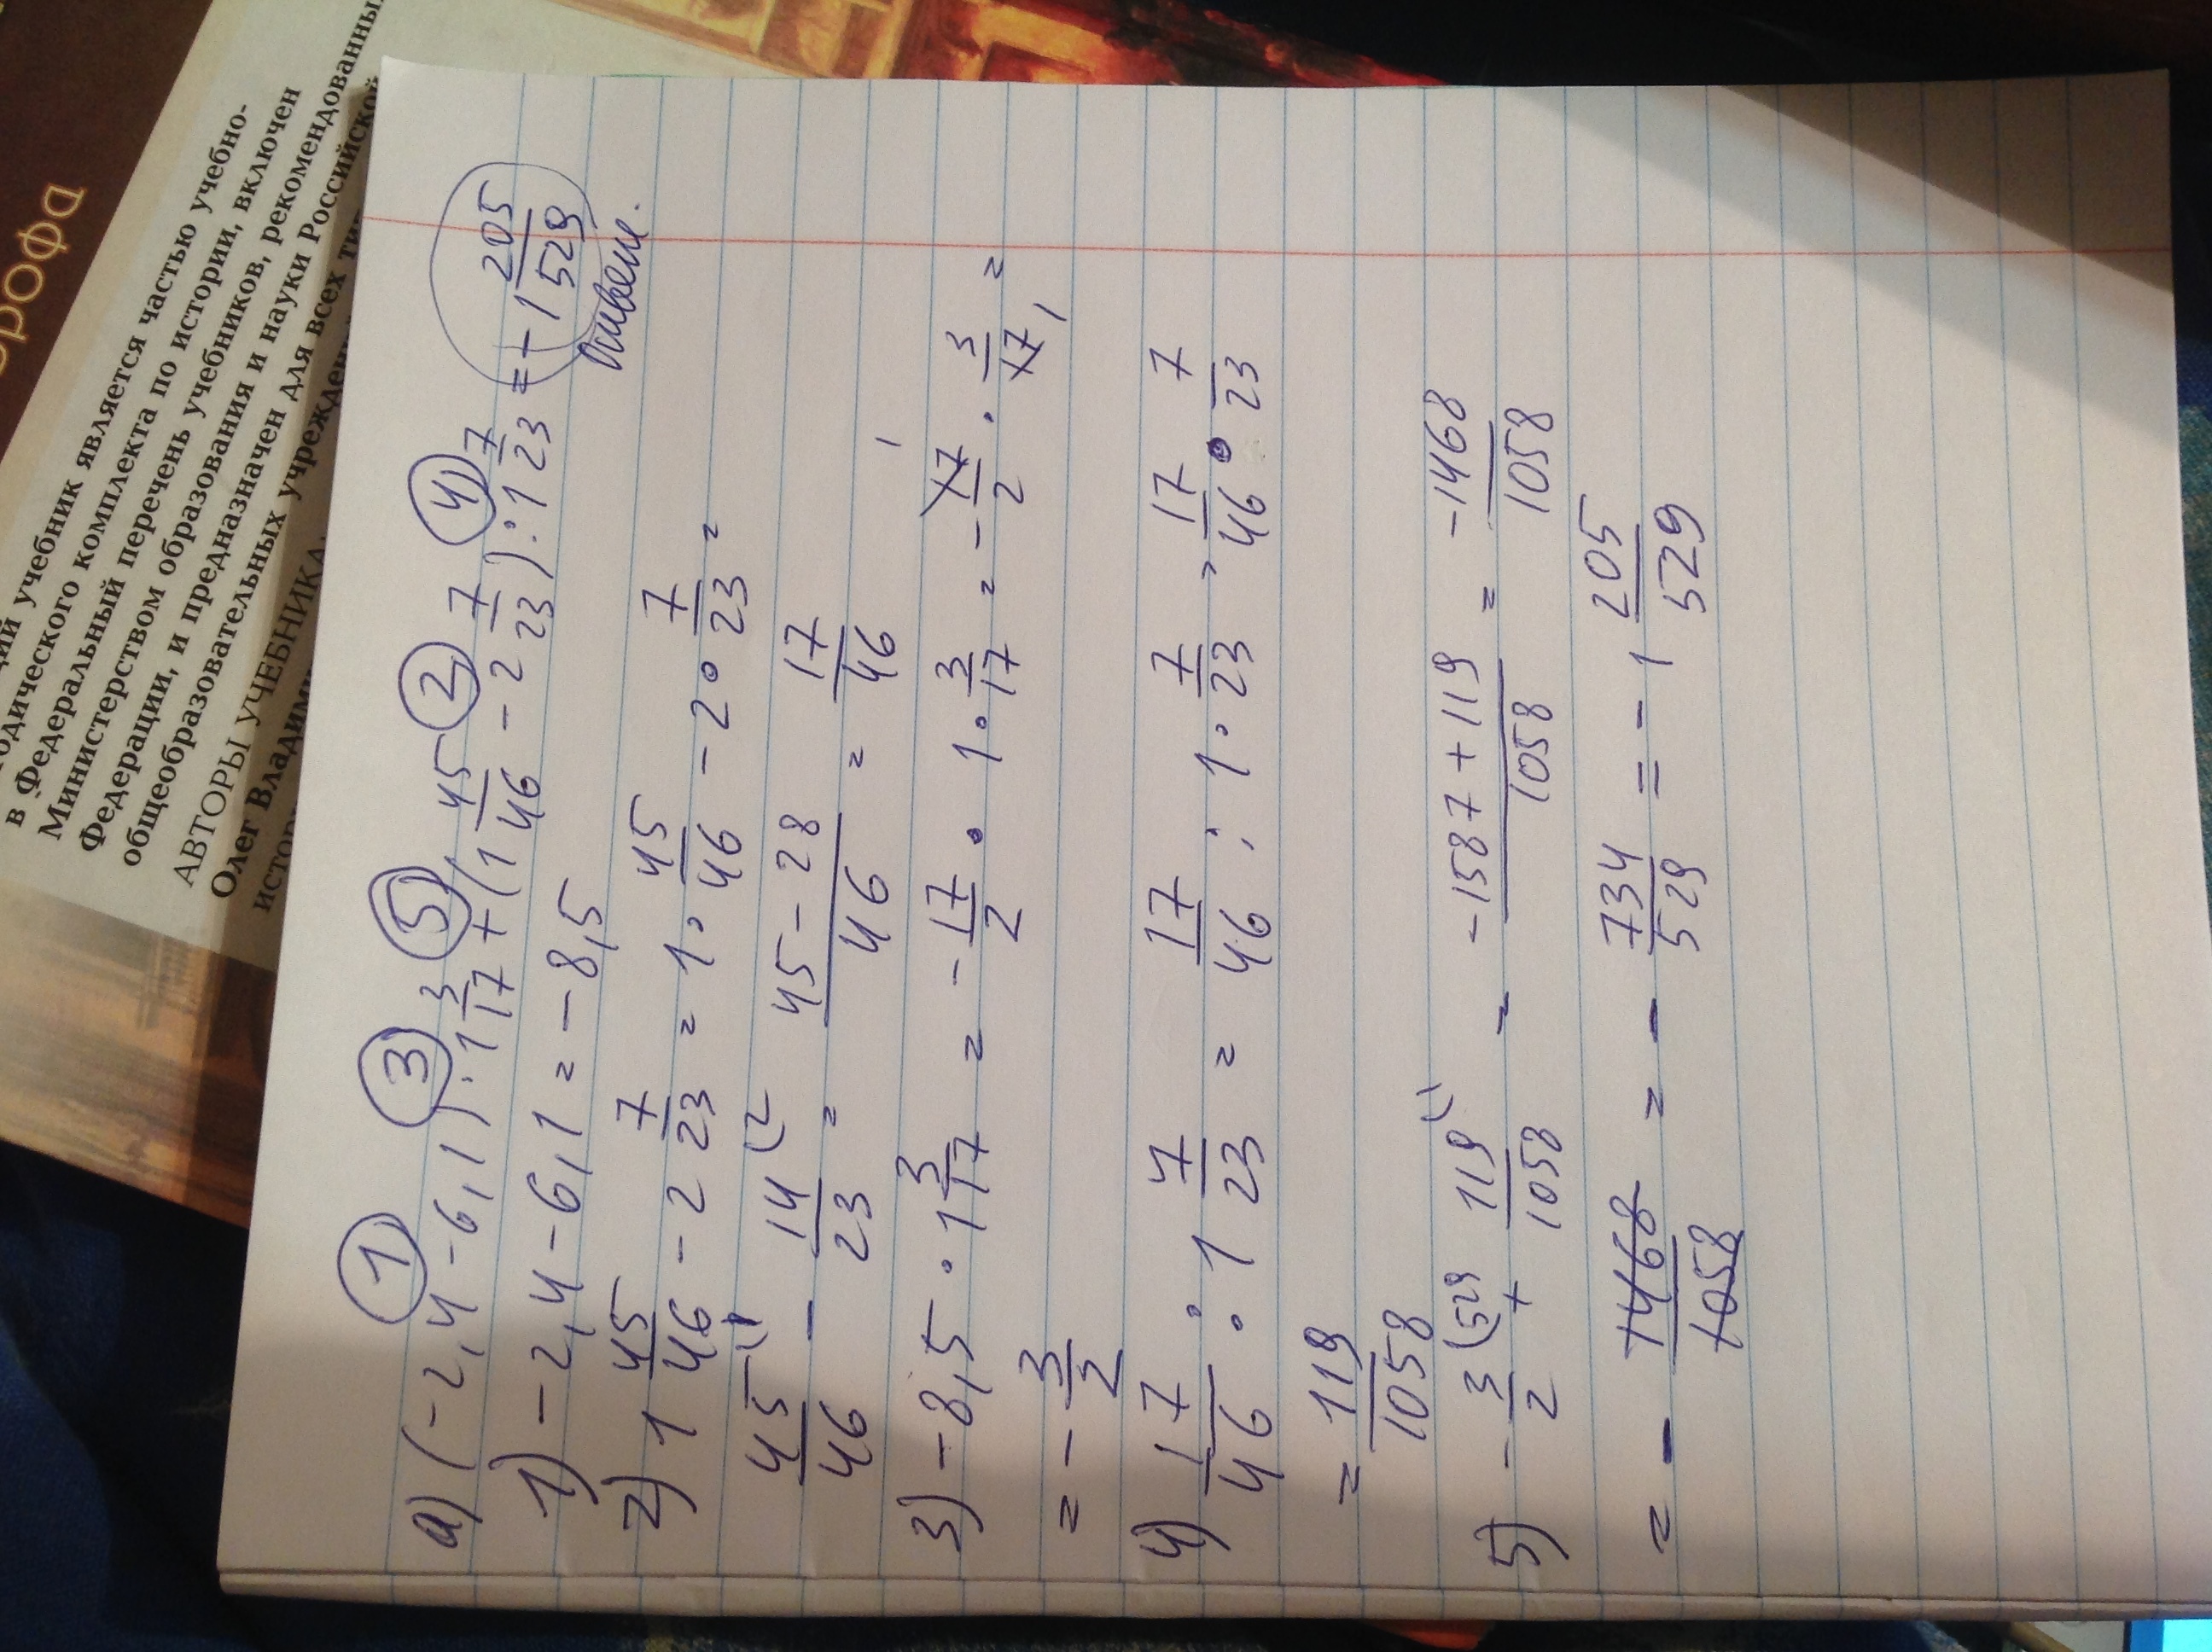 рофа
щий учебник является частью учебно-
одического комплекта по истории, включен
в Федеральный перечень учебников, рекомендованных
Министерством образования и науки Российской
Федерации, и предназначен для всех ти
общеобразовательных учрежден
АВТОРЫ УЧЕБНИКА
Олег Владими
истор
① ③ ⑤ ② ④
а) (-2,4-6,1) · 1 3/17 + (1 45/46 - 2 7/23) : 1 7/23 = -1 205/529
Ответ.
1) -2,4-6,1 = -8,5
2) 1 45/46 - 2 7/23 = 1 · 45/46 - 2 · 7/23 =
45/46 (1 - 14/23 (2 = 45-28/46 = 17/46
3) -8,5 · 1 3/17 = -17/2 · 1 · 3/17 = -17/2 · 3/17 1 =
= -3/2
4) 17/46 : 1 7/23 = 17/46 : 1 · 7/23 = 17/46 · 7/23
= 119/1058
5) -3/2 (529 + 119/1058 (1 = -1587+119/1058 = -1468/1058
= -1468/1058 = -734/529 = -1 205/529